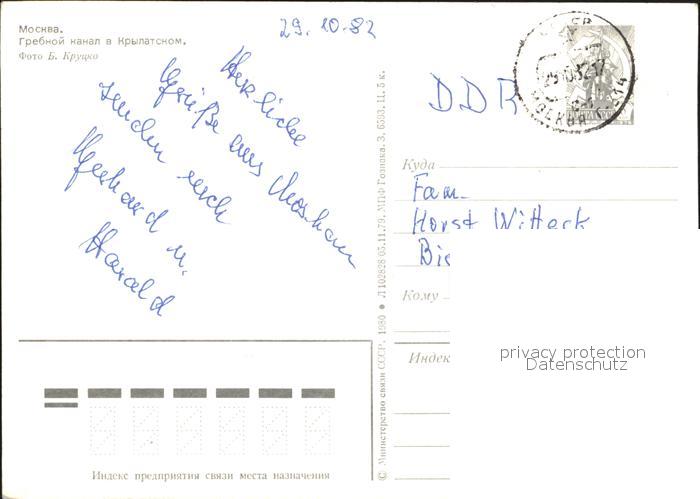 Москва.
Гребной канал в Крылатском.
Фото Б. Круцко
29.10.82
Herzliche
Grüße aus Moskau
senden euch
Gerhard u.
Harald
DDR
29.10.82 17
МОСКВА
Куда
Fam.
Horst Witteck
Bie
Кому
Индек
privacy protection
Datenschutz
© Министерство связи СССР, 1980 ● Л 102828/05.11.79. МПФ Гознака. З. 6393. Ц. 5 к.
Индекс предприятия связи места назначения